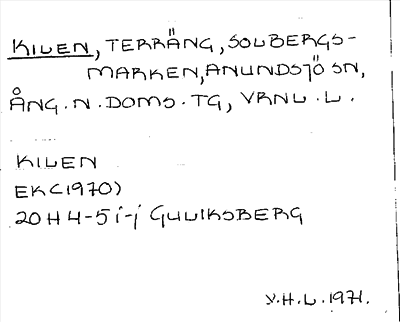 KILEN, TERRÄNG, SOLBERGS-
MARKEN, ANUNDSJÖ SN,
ÅNG. N. DOMS. TG, VRNL. L.
KILEN
EK(1970)
20H 4-5 i-j GULIKSBERG
Y.H.L. 1971.